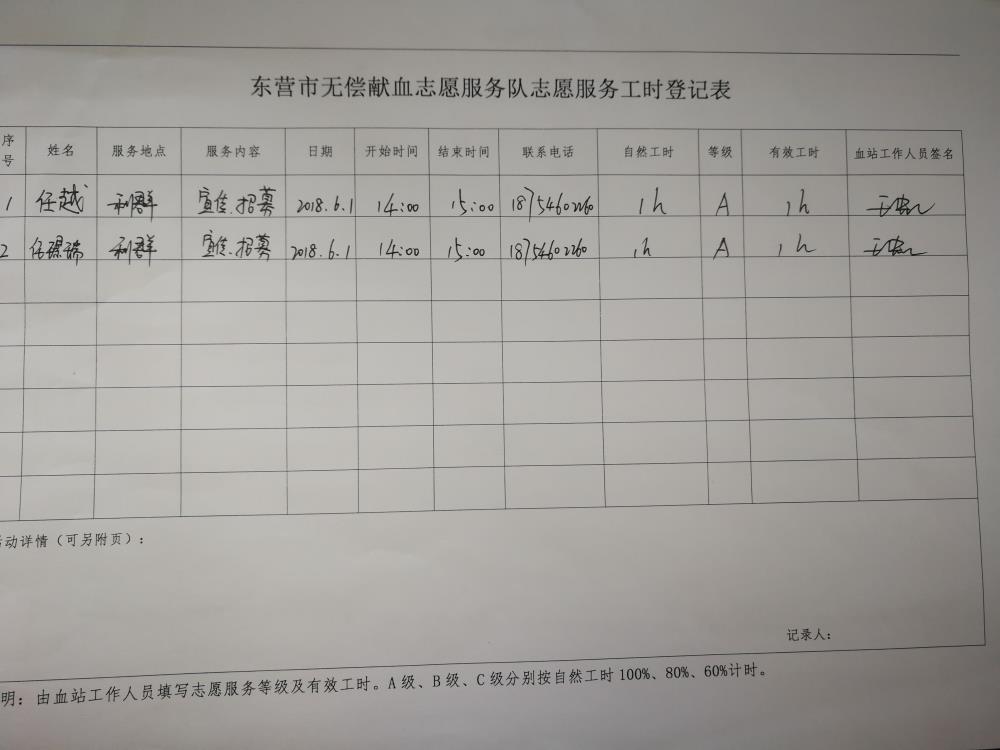 东营市无偿献血志愿服务队志愿服务工时登记表
序号 姓名 服务地点 服务内容 日期 开始时间 结束时间 联系电话 自然工时 等级 有效工时 血站工作人员签名
1 任越 利群 宣传.招募 2018.6.1 14:00 15:00 18754602260 1h A 1h
2 任 利群 宣传.招募 2018.6.1 14:00 15:00 18754602260 1h A 1h
动详情（可另附页）：
记录人：
明：由血站工作人员填写志愿服务等级及有效工时。A级、B级、C级分别按自然工时100%、80%、60%计时。